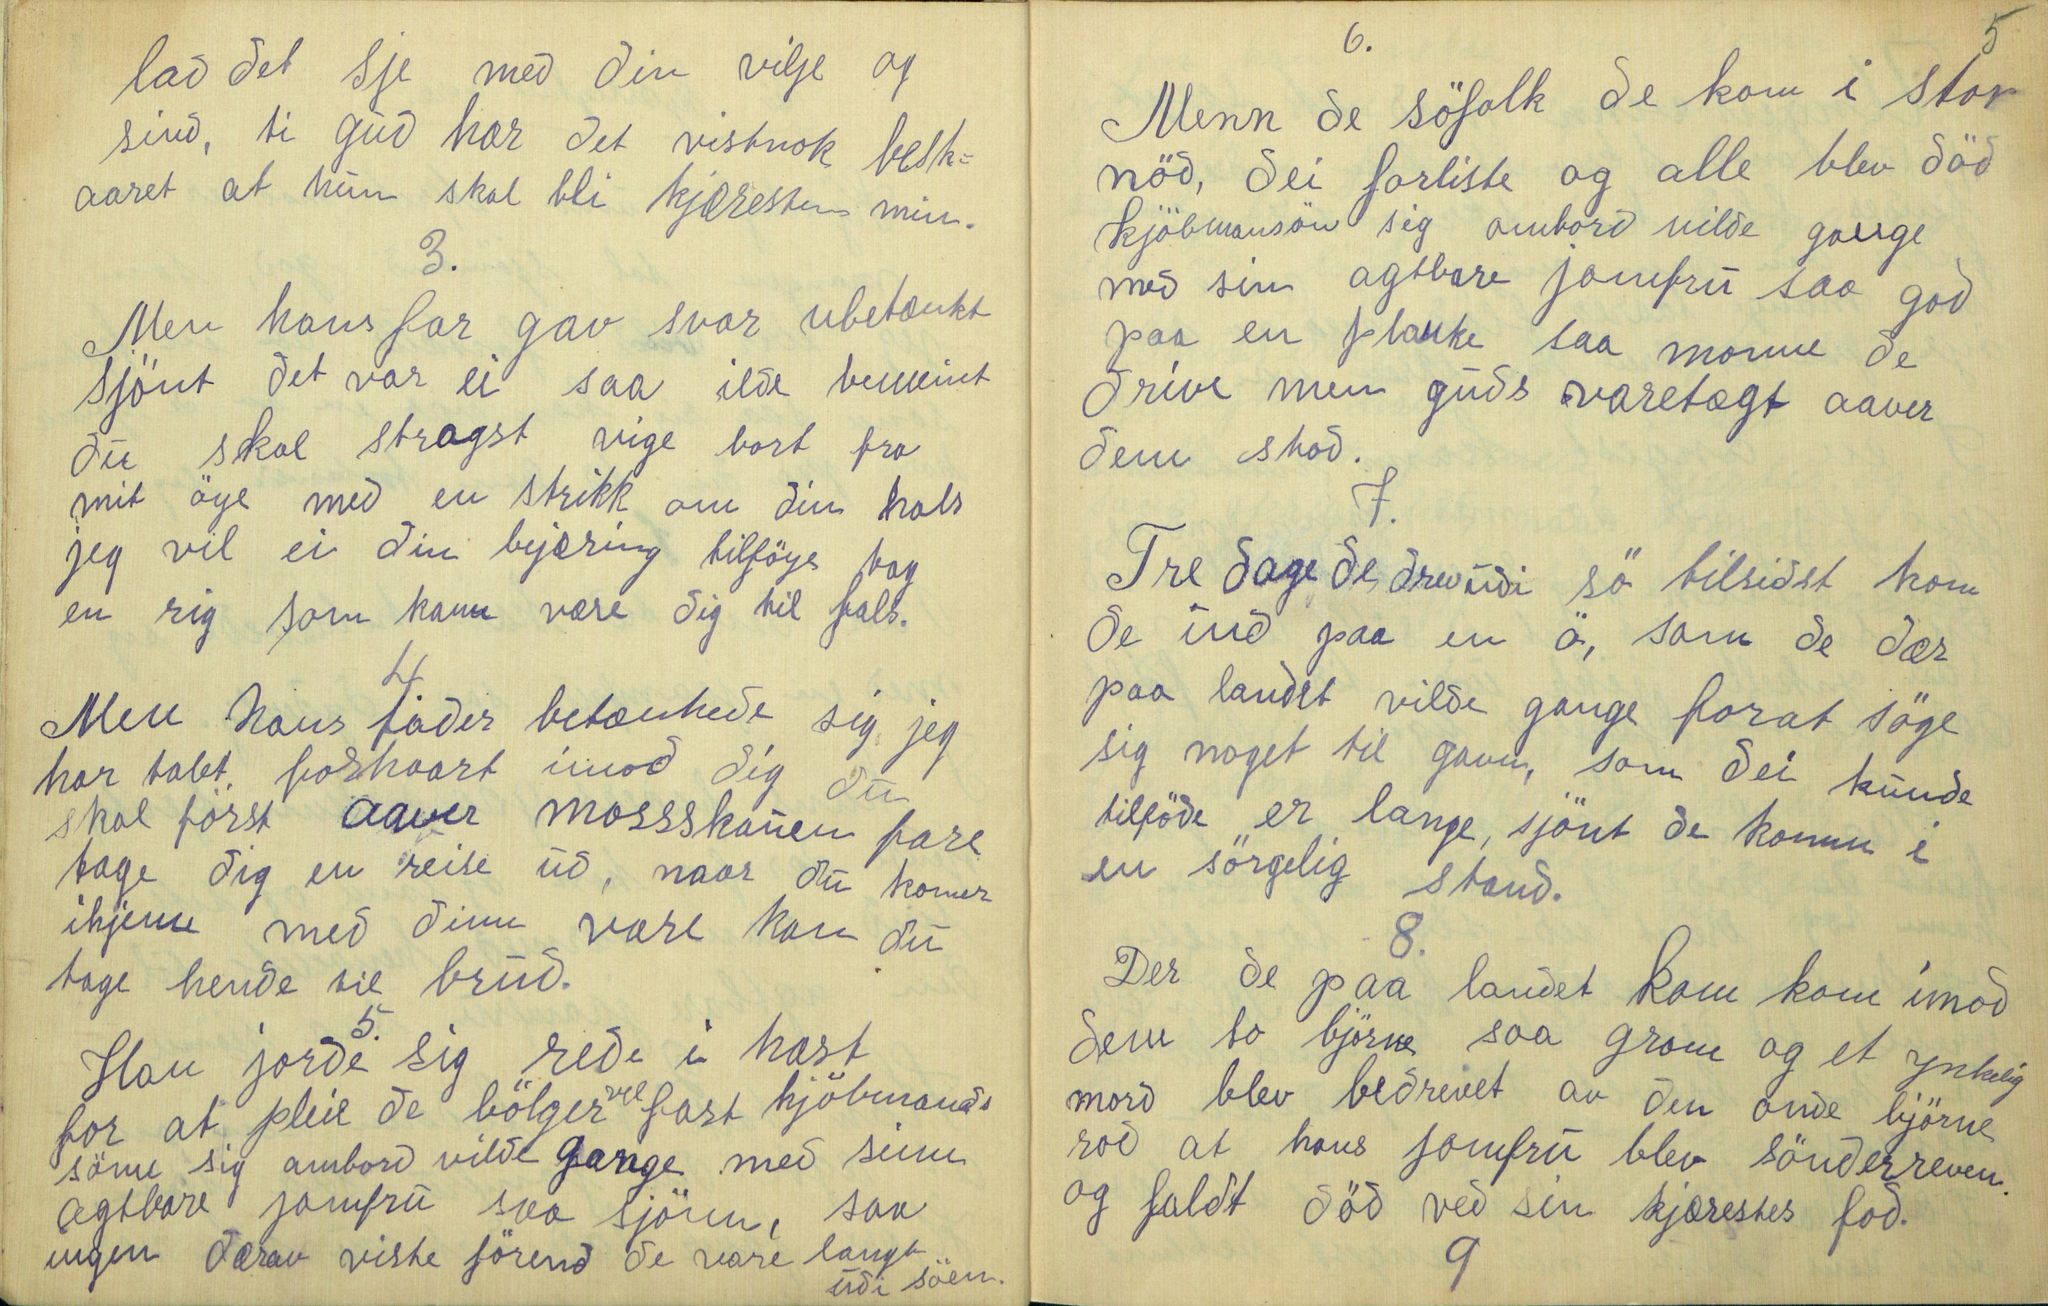 lad det sje med din vilje og
sind, ti gud har det vistnok besk=
aaret at hun skal bli kjæresten min.
3.
Men hans far gav svar ubetænkt
sjönt det var ei saa ilde bemeint
du skal stragst vige bort fra
mit öye med en strikk om din hals
jeg vil ei din bejæring tilföye tag
en rig som kann være dig til fals.
4
Men hans fader betænkede sig jeg
har talet forhaart imod dig du
skal först aaver mossskauen fare
tage dig en reise ud, naar du komer
ihjeme med dinn vare kan du
tage hende til brud.
5.
Han jorde sig rede i hast
for at pleie de bölger vel fast kjöbmands
sönne sig ambord vilde gange med sinn
agtbare jomfru saa sjönn, saa
ingen dærav viste förend de vare langt
udi söen.
5
6.
Menn de söfolk de kom i stor
nöd, dei forliste og alle blev död
kjöbmansön sig ambord vilde gange
med sin agtbare jomfru saa god
paa en planke saa monne de
drive men guds varetægt aaver
dem stod.
7.
Tre dage de drev udi sö tilsidst kom
de ind paa en ö, som de dær
paa landet vilde gange forat söge
sig noget til gavn, som dei kunde
tilföde er lange, sjönt de komm i
en sörgelig stand.
8.
Der de paa landet kom kom imod
dem to björne saa gram og et ynkelig
mord blev bedrevet av den onde björne
rod at hans jomfru blev sönderreven.
og faldt död ved sin kjærestes fod.
9